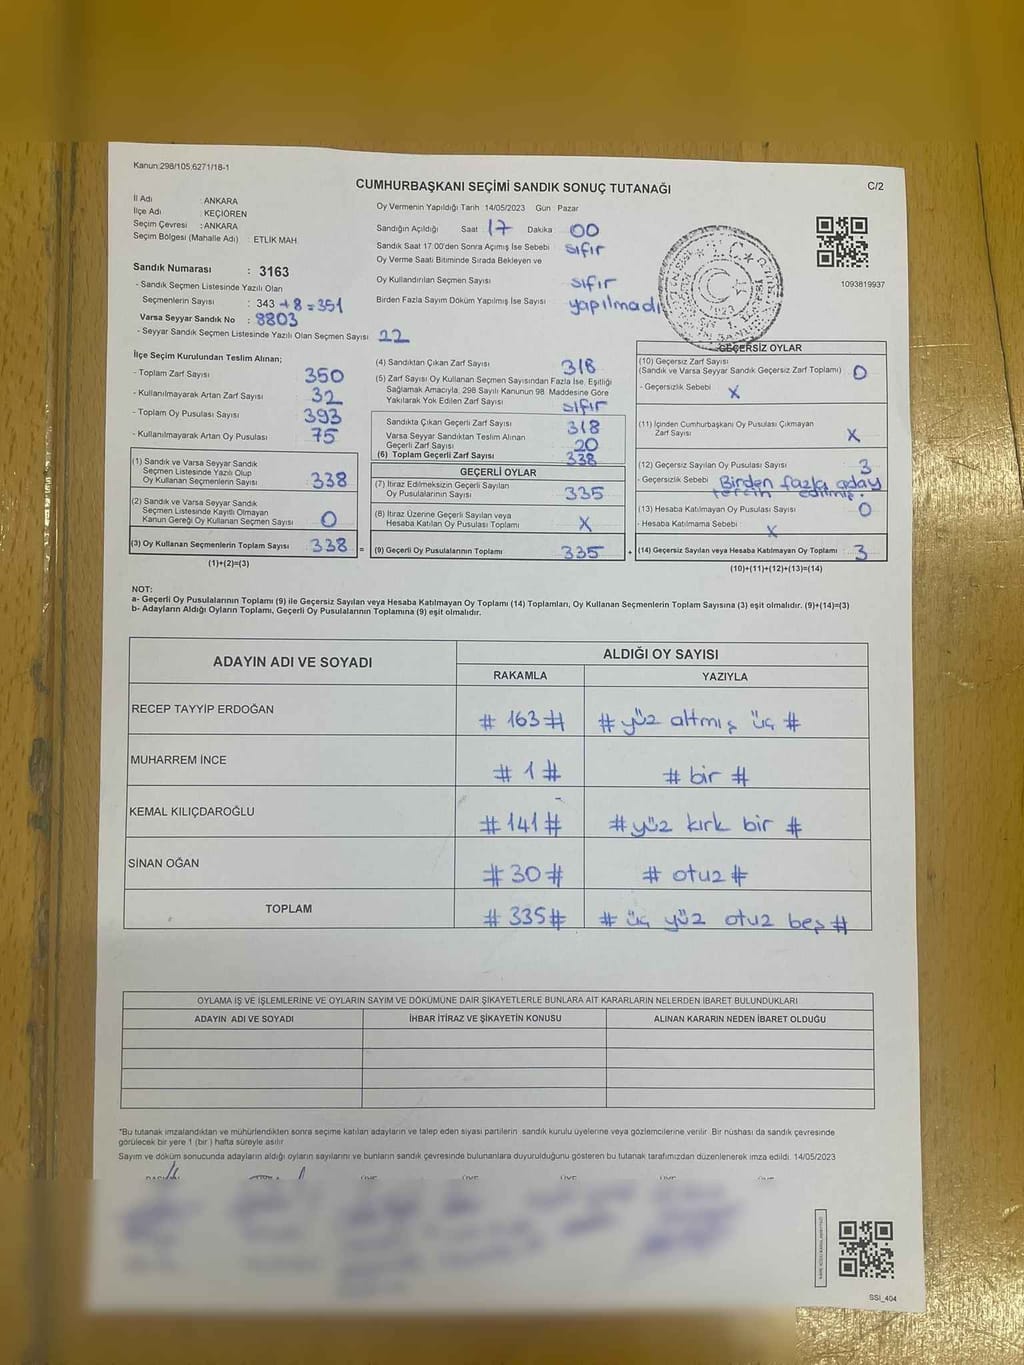 Kanun:298/105,6271/18-1
CUMHURBAŞKANI SEÇİMİ SANDIK SONUÇ TUTANAĞI
C/2
İl Adı : ANKARA
İlçe Adı : KEÇİÖREN
Seçim Çevresi : ANKARA
Seçim Bölgesi (Mahalle Adı) : ETLİK MAH
Sandık Numarası : 3163
- Sandık Seçmen Listesinde Yazılı Olan
Seçmenlerin Sayısı : 343 +8 = 351
Varsa Seyyar Sandık No : 8803
- Seyyar Sandık Seçmen Listesinde Yazılı Olan Seçmen Sayısı 22
Oy Vermenin Yapıldığı Tarih 14/05/2023 Gün Pazar
Sandığın Açıldığı Saat 17 Dakika 00
Sandık Saat 17.00'den Sonra Açımış İse Sebebi sıfır
Oy Verme Saati Bitiminde Sırada Bekleyen ve
Oy Kullandırılan Seçmen Sayısı sıfır
Birden Fazla Sayım Döküm Yapılmış İse Sayısı yapılmadı
1093819937
İlçe Seçim Kurulundan Teslim Alınan;
- Toplam Zarf Sayısı 350
- Kullanılmayarak Artan Zarf Sayısı 32
- Toplam Oy Pusulası Sayısı 393
- Kullanılmayarak Artan Oy Pusulası 75
(1) Sandık ve Varsa Seyyar Sandık
Seçmen Listesinde Yazılı Olup
Oy Kullanan Seçmenlerin Sayısı 338
(2) Sandık ve Varsa Seyyar Sandık
Seçmen Listesinde Kayıtlı Olmayan
Kanun Gereği Oy Kullanan Seçmen Sayısı 0
(3) Oy Kullanan Seçmenlerin Toplam Sayısı 338 =
(1)+(2)=(3)
(4) Sandıktan Çıkan Zarf Sayısı 318
(5) Zarf Sayısı Oy Kullanan Seçmen Sayısından Fazla İse, Eşitliği
Sağlamak Amacıyla, 298 Sayılı Kanunun 98. Maddesine Göre
Yakılarak Yok Edilen Zarf Sayısı sıfır
Sandıkta Çıkan Geçerli Zarf Sayısı 318
Varsa Seyyar Sandıktan Teslim Alınan
Geçerli Zarf Sayısı 20
(6) Toplam Geçerli Zarf Sayısı 338
GEÇERLİ OYLAR
(7) İtiraz Edilmeksizin Geçerli Sayılan
Oy Pusulalarının Sayısı 335
(8) İtiraz Üzerine Geçerli Sayılan veya
Hesaba Katılan Oy Pusulası Toplamı X
(9) Geçerli Oy Pusulalarının Toplamı 335 +
GEÇERSİZ OYLAR
(10) Geçersiz Zarf Sayısı
(Sandık ve Varsa Seyyar Sandık Geçersiz Zarf Toplamı) 0
- Geçersizlik Sebebi X
(11) İçinden Cumhurbaşkanı Oy Pusulası Çıkmayan
Zarf Sayısı X
(12) Geçersiz Sayılan Oy Pusulası Sayısı 3
- Geçersizlik Sebebi Birden fazla aday
tercih edilmiş.
(13) Hesaba Katılmayan Oy Pusulası Sayısı 0
- Hesaba Katılmama Sebebi X
(14) Geçersiz Sayılan veya Hesaba Katılmayan Oy Toplamı 3
(10)+(11)+(12)+(13)=(14)
NOT:
a- Geçerli Oy Pusulasının Toplamı (9) ile Geçersiz Sayılan veya Hesaba Katılmayan Oy Toplamı (14) Toplamları, Oy Kullanan Seçmenlerin Toplam Sayısına (3) eşit olmalıdır. (9)+(14)=(3)
b- Adayların Aldığı Oyların Toplamı, Geçerli Oy Pusulalarının Toplamına (9) eşit olmalıdır.
ADAYIN ADI VE SOYADI
ALDIĞI OY SAYISI
RAKAMLA YAZIYLA
RECEP TAYYİP ERDOĞAN # 163 # # yüz altmış üç #
MUHARREM İNCE # 1 # # bir #
KEMAL KILIÇDAROĞLU # 141 # # yüz kırk bir #
SİNAN OĞAN # 30 # # otuz #
TOPLAM # 335 # # üç yüz otuz beş #
OYLAMA İŞ VE İŞLEMLERİNE VE OYLARIN SAYIM VE DÖKÜMÜNE DAİR ŞİKAYETLERLE BUNLARA AİT KARARLARIN NELERDEN İBARET BULUNDUKLARI
ADAYIN ADI VE SOYADI İHBAR İTİRAZ VE ŞİKAYETİN KONUSU ALINAN KARARIN NEDEN İBARET OLDUĞU
*Bu tutanak imzalandıktan ve mühürlendikten sonra seçime katılan adayların ve talep eden siyasi partilerin sandık kurulu üyelerine veya gözlemcilerine verilir. Bir nüshası da sandık çevresinde
görülecek bir yere 1 (bir ) hafta süreyle asılır
Sayım ve döküm sonucunda adayların aldığı oyların sayılarını ve bunların sandık çevresinde bulunanlara duyurulduğunu gösteren bu tutanak tarafımızdan düzenlenerek imza edildi. 14/05/2023
SSİ_404